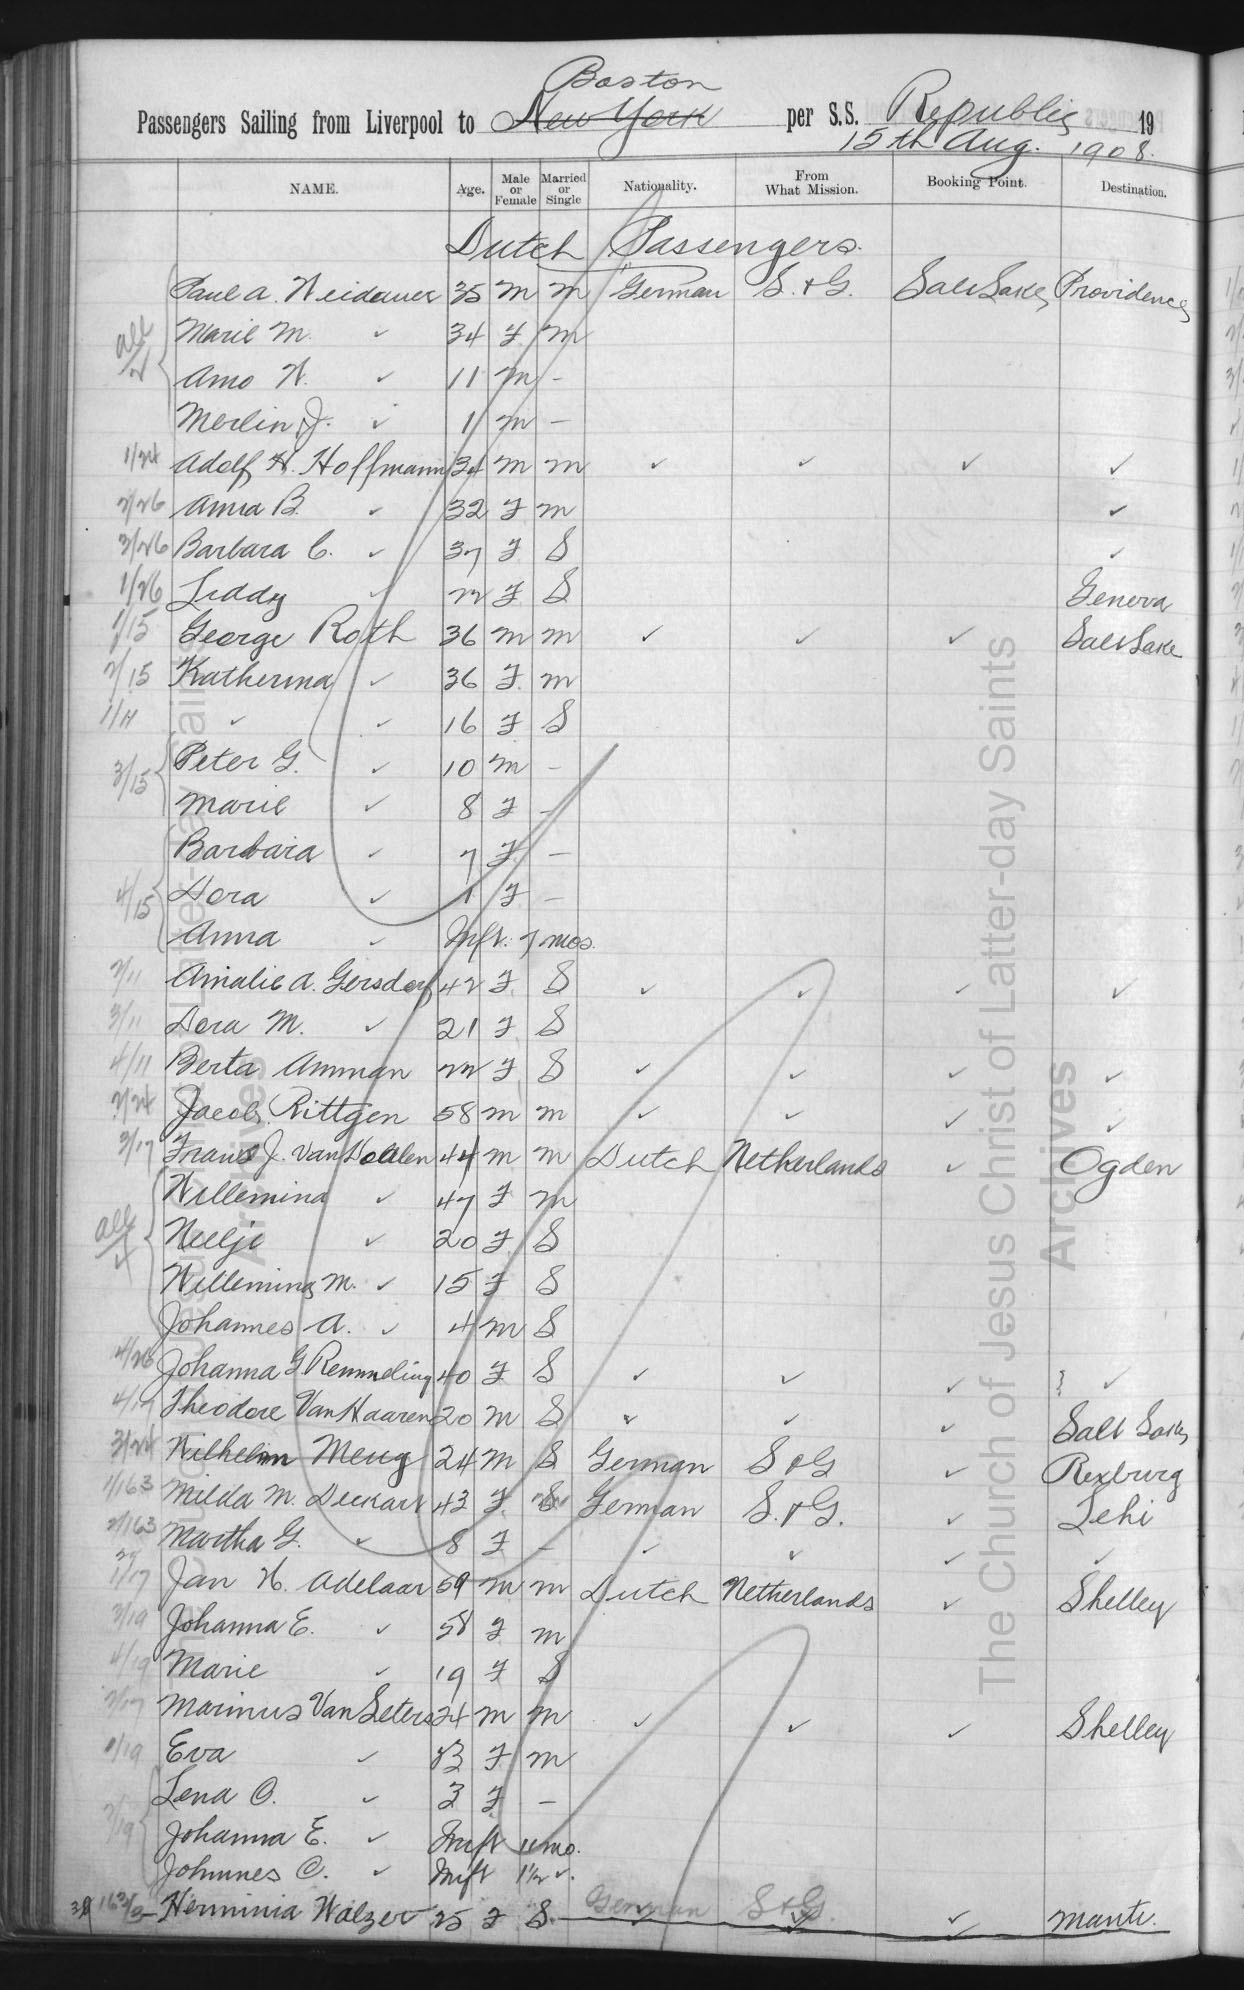 Boston
Passengers Sailing from Liverpool to New York per S.S. Republic 19
15th Aug. 1908.
NAME. Age. Male or Female Married or Single Nationality. From What Mission. Booking Point. Destination.
Dutch Passengers.
Paul A. Weidauer 35 m m German S. & G. Salt Lake Providence
all/4 Marie M. ✓ 34 F m
Arno W. ✓ 11 m -
Merlin J. ✓ 1 m -
1/24 Adolf H. Hoffmann 34 m m ✓ ✓ ✓ ✓
2/26 Anna B. ✓ 32 F m ✓
3/26 Barbara C. ✓ 37 F S ✓
1/26 Liddy ✓ 22 F S Geneva
1/15 George Roth 36 m m ✓ ✓ ✓ Salt Lake
2/15 Katherina ✓ 36 F. m
1/11 ✓ ✓ 16 F S
3/15 Peter G. ✓ 10 m -
Marie ✓ 8 F -
Barbara ✓ 7 F -
4/15 Dora ✓ 1 F -
Anna ✓ Inft. 7 mos.
2/11 Amalie A. Gersdorf 42 F. S ✓ ✓ ✓ ✓
3/11 Dora M. ✓ 21 F S
4/11 Berta Amman 22 F S ✓ ✓ ✓ ✓
2/24 Jacob Rittgen 58 m m ✓ ✓ ✓ ✓
3/17 Frans J. Van 44 m m Dutch Netherlands ✓ Ogden
Willemina ✓ 47 F m
all/4 Neelje ✓ 20 F. S
Willemina M. ✓ 15 F S
Johannes A. ✓ 4 m S
4/26 Johanna G 40 F S ✓ ✓ ✓ ✓
4/17 Theodore Van Haaren 20 m S ✓ ✓ ✓ Salt Lake
3/24 Wilhelm Meng 24 m S German S & G ✓ Rexburg
1/163 Milda M. Deckart 43 F. S German S. & G. ✓ Lehi
2/163 Martha G. ✓ 8 F - ✓ ✓ ✓ ✓
1/17 Jan H. Adelaar 59 m m Dutch Netherlands ✓ Shelley
3/19 Johanna E. ✓ 58 F m
4/19 Marie ✓ 19 F S
2/17 Marinus Van Leters 24 m m ✓ ✓ ✓ Shelley
1/19 Eva ✓ 23 F m
Lena C. ✓ 3 F -
2/19 Johanna E. ✓ Inft 11 mo.
Johnnes C. ✓ Inft 1½ ✓.
163/3 Herminia Walzer 25 F S. German S & G. ✓ Manti.
The Church of Jesus Christ of Latter-day Saints
Archives
The Church of Jesus Christ of Latter-day Saints
Archives